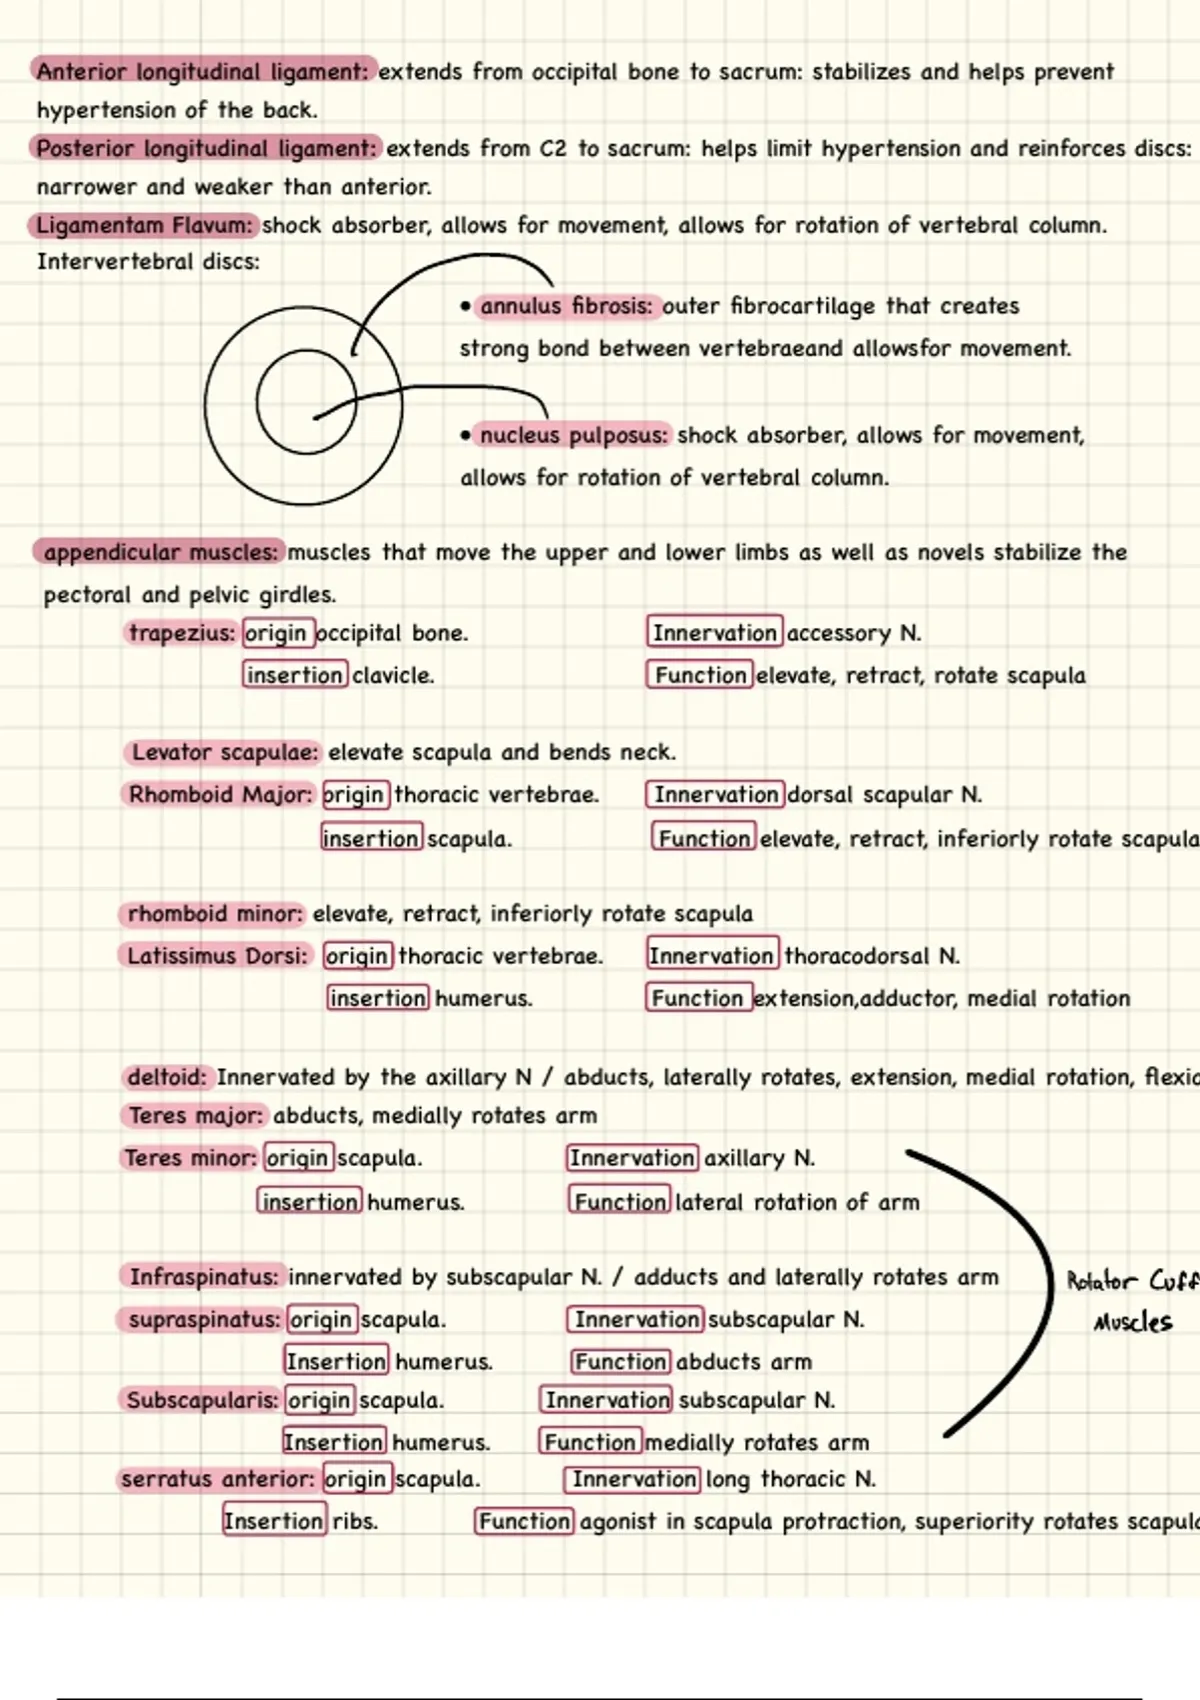 Anterior longitudinal ligament: extends from occipital bone to sacrum: stabilizes and helps prevent
hypertension of the back.
Posterior longitudinal ligament: extends from C2 to sacrum: helps limit hypertension and reinforces discs:
narrower and weaker than anterior.
Ligamentam Flavum: shock absorber, allows for movement, allows for rotation of vertebral column.
Intervertebral discs:
• annulus fibrosis: outer fibrocartilage that creates
strong bond between vertebraeand allowsfor movement.
• nucleus pulposus: shock absorber, allows for movement,
allows for rotation of vertebral column.
appendicular muscles: muscles that move the upper and lower limbs as well as novels stabilize the
pectoral and pelvic girdles.
trapezius: origin occipital bone. Innervation accessory N.
insertion clavicle. Function elevate, retract, rotate scapula
Levator scapulae: elevate scapula and bends neck.
Rhomboid Major: origin thoracic vertebrae. Innervation dorsal scapular N.
insertion scapula. Function elevate, retract, inferiorly rotate scapula
rhomboid minor: elevate, retract, inferiorly rotate scapula
Latissimus Dorsi: origin thoracic vertebrae. Innervation thoracodorsal N.
insertion humerus. Function extension,adductor, medial rotation
deltoid: Innervated by the axillary N / abducts, laterally rotates, extension, medial rotation, flexio
Teres major: abducts, medially rotates arm
Teres minor: origin scapula. Innervation axillary N.
insertion humerus. Function lateral rotation of arm
Infraspinatus: innervated by subscapular N. / adducts and laterally rotates arm
Rotator Cuff
Muscles
supraspinatus: origin scapula. Innervation subscapular N.
Insertion humerus. Function abducts arm
Subscapularis: origin scapula. Innervation subscapular N.
Insertion humerus. Function medially rotates arm
serratus anterior: origin scapula. Innervation long thoracic N.
Insertion ribs. Function agonist in scapula protraction, superiority rotates scapula